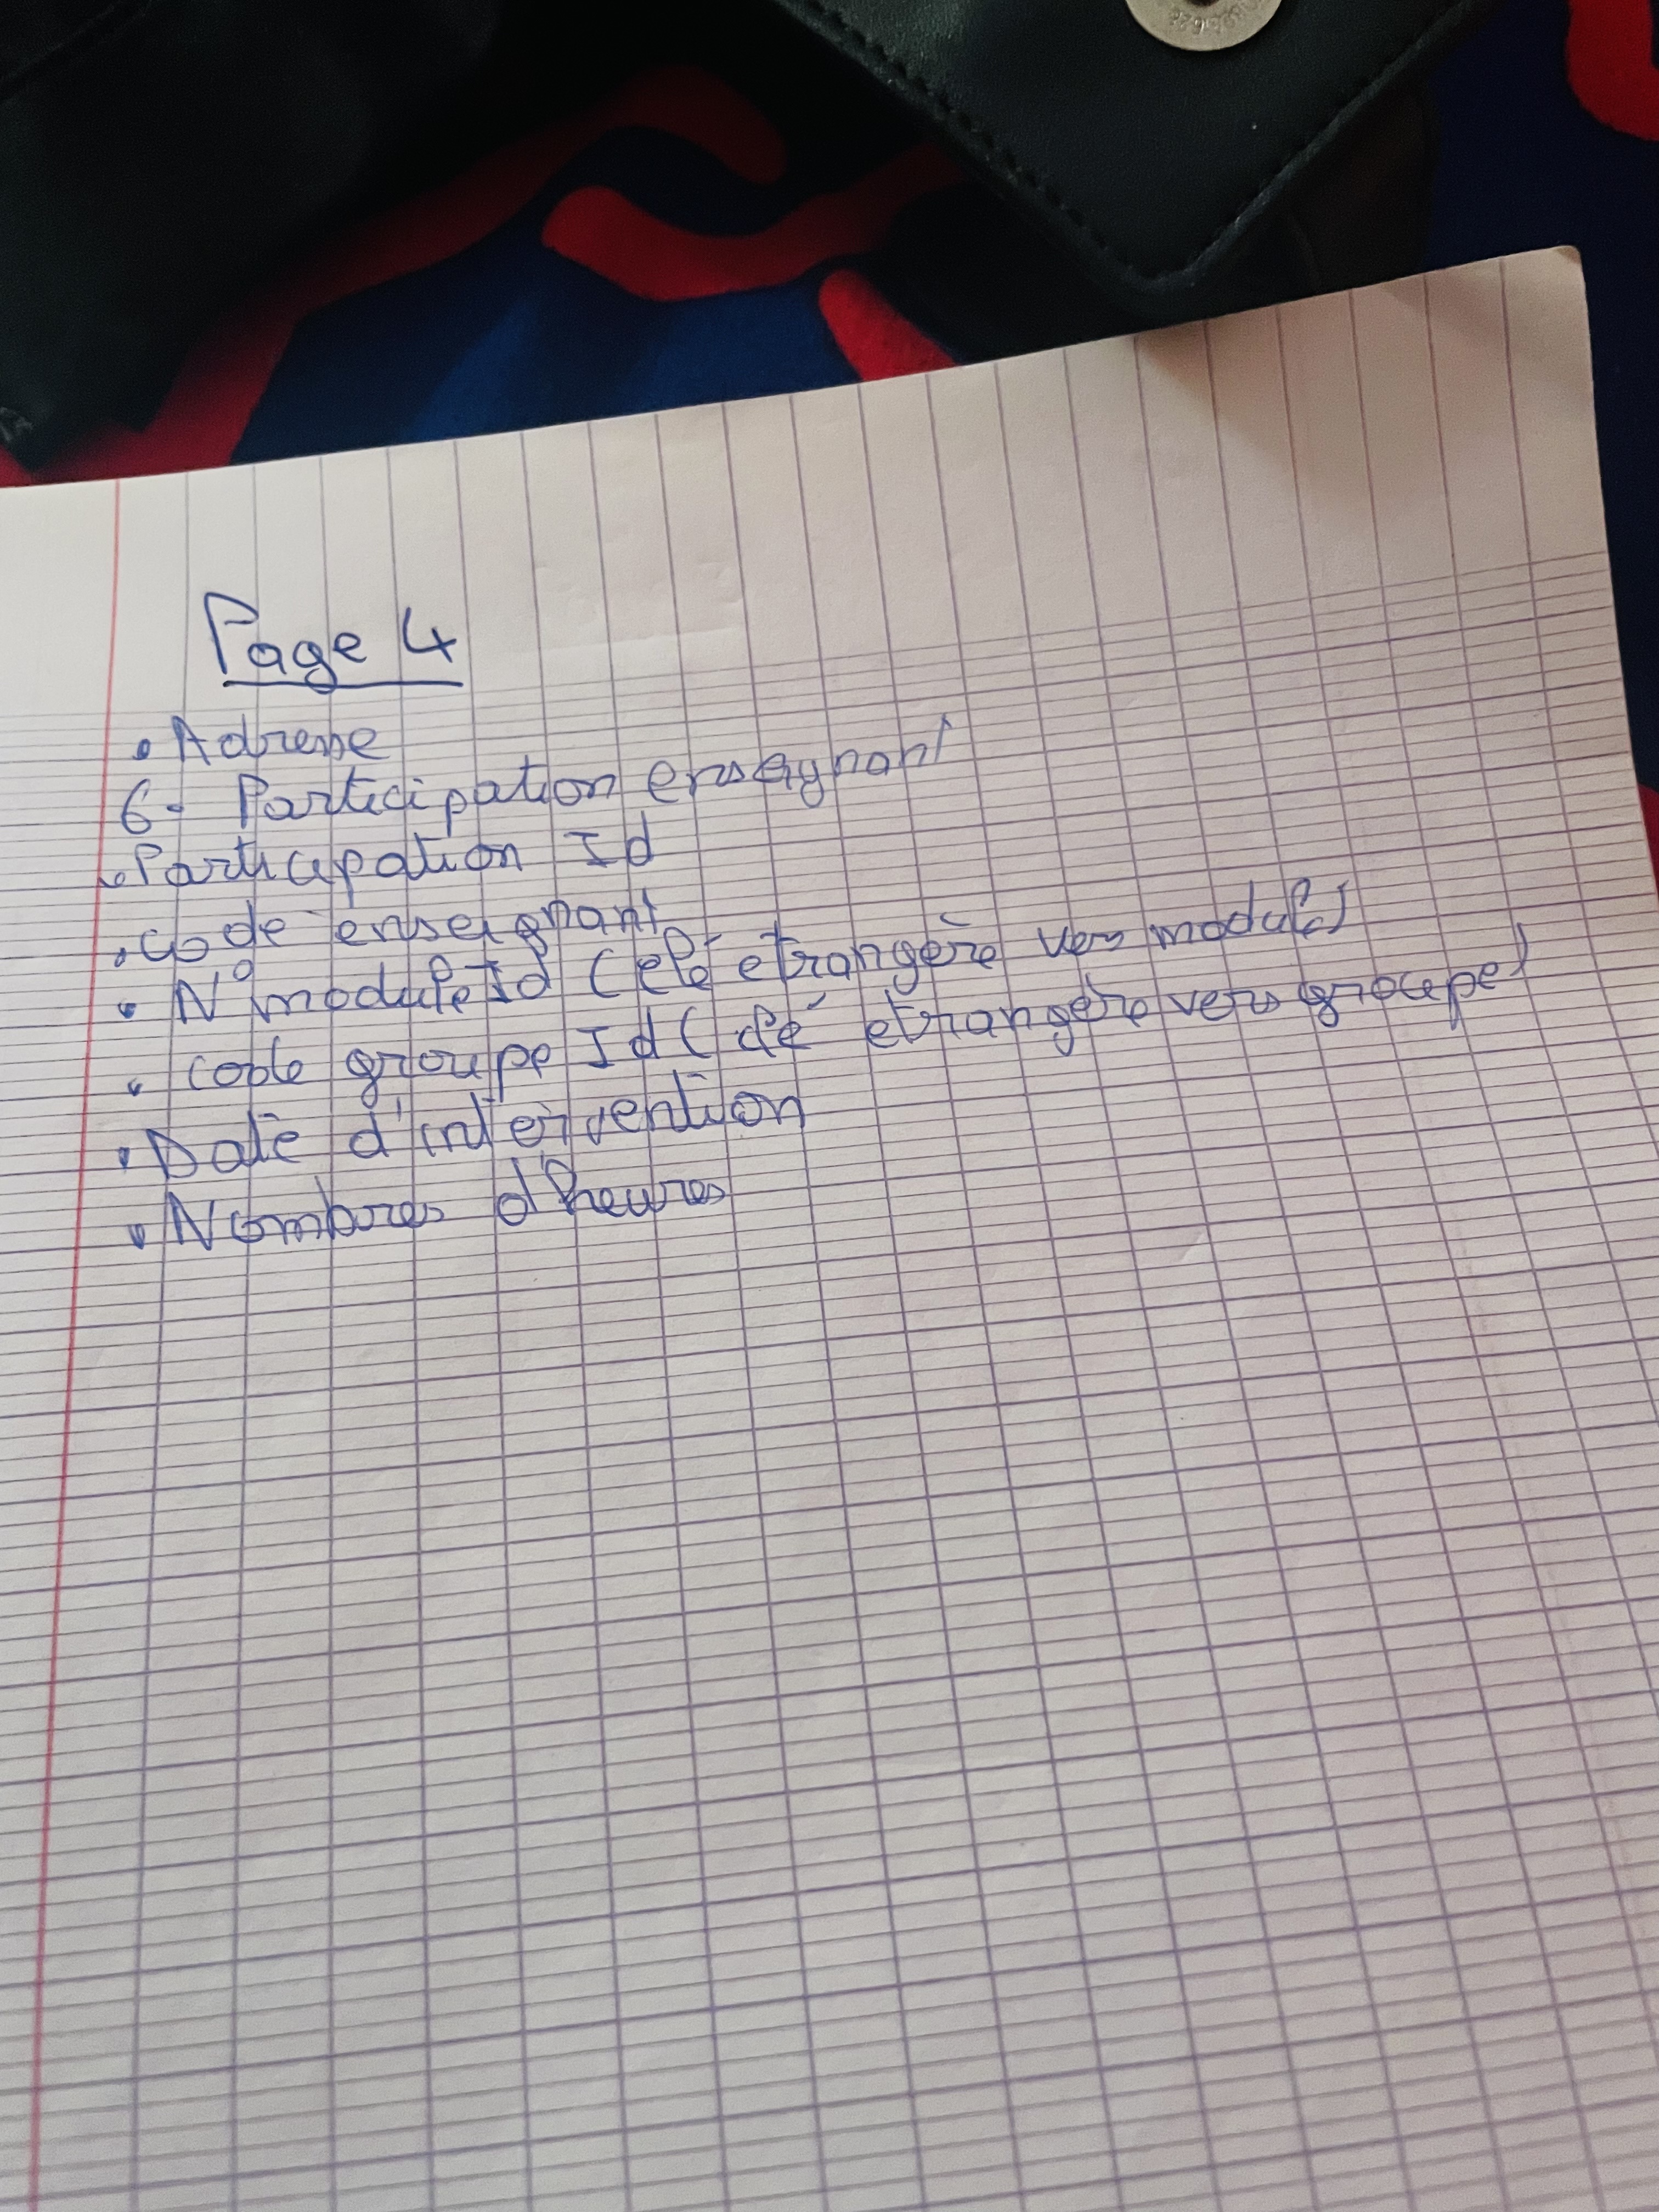 Page 4
• Adresse
6- Participation enseignant
• Participation Id
• Code enseignant
• N° module Id (clé etrangère vers module)
• code groupe Id (clé etrangère vers groupe)
• Date d'intervention
• Nombres d'heures